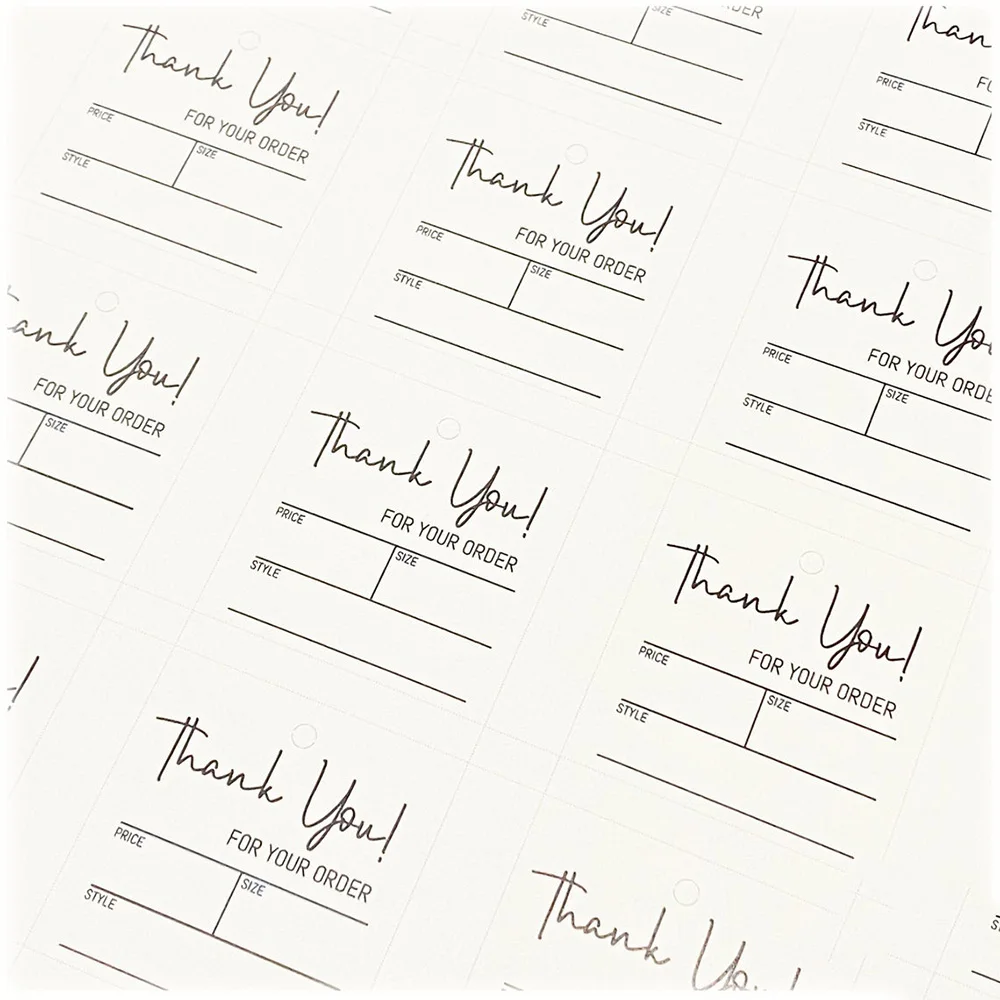 SIZE
ORDER
Thank You!
FOR YOUR ORDER
PRICE
SIZE
STYLE
Than
PRICE
STYLE
Thank You!
FOR YOUR ORDER
PRICE
SIZE
STYLE
Thank Yo
FOR YOUR ORDE
PRICE
SIZE
STYLE
ank You!
FOR YOUR ORDER
SIZE
Thank You!
FOR YOUR ORDER
PRICE
SIZE
STYLE
Thank You!
FOR YOUR ORDER
PRICE
SIZE
STYLE
Thank You!
FOR YOUR ORDER
PRICE
SIZE
STYLE
Thank You!